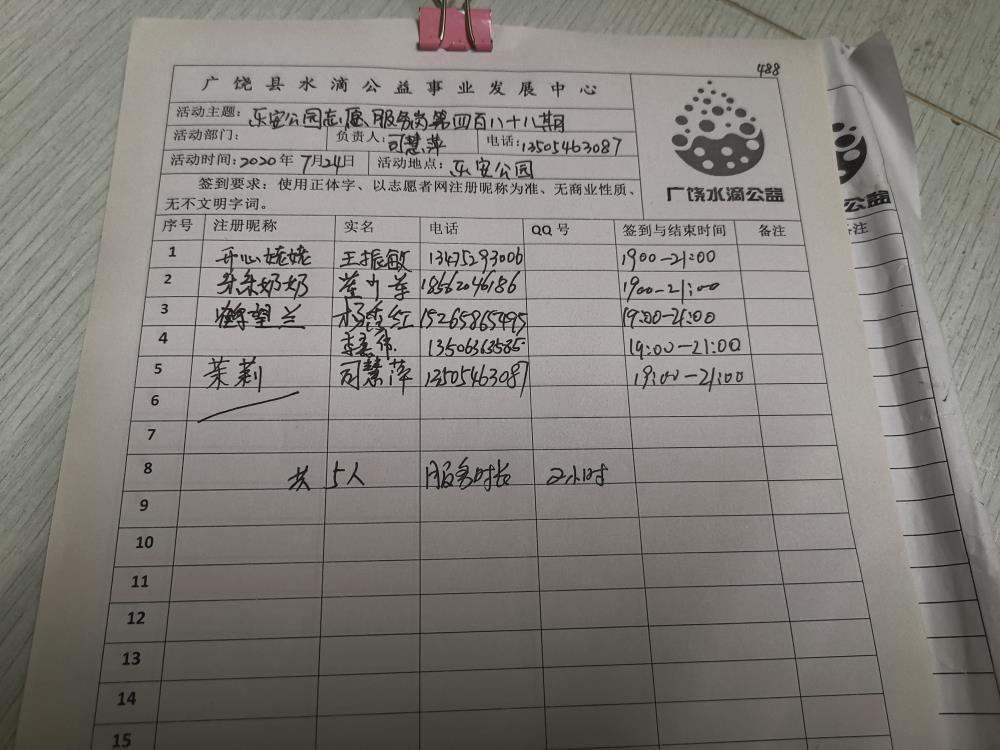 488
广饶县水滴公益事业发展中心
活动主题：乐安公园志愿服务岗第四百八十八期
活动部门： 负责人：司慧萍 电话：13505463087
活动时间：2020年7月24日 活动地点：乐安公园
签到要求：使用正体字、以志愿者网注册昵称为准、无商业性质、
无不文明字词。
广饶水滴公益
序号 注册昵称 实名 电话 QQ号 签到与结束时间 备注
1 开心姥姥 王振敏 13475293006 1900-21:00
2 朵朵奶奶 18562046186 1900-21:00
3 鹤望兰 杨香红 15265865495 19:00-21:00
4 13506363585 19:00-21:00
5 茉莉 司慧萍 13505463087 19:00-21:00
6
7
8 共5人 服务时长 2小时
9
10
11
12
13
14
15
公益
备注